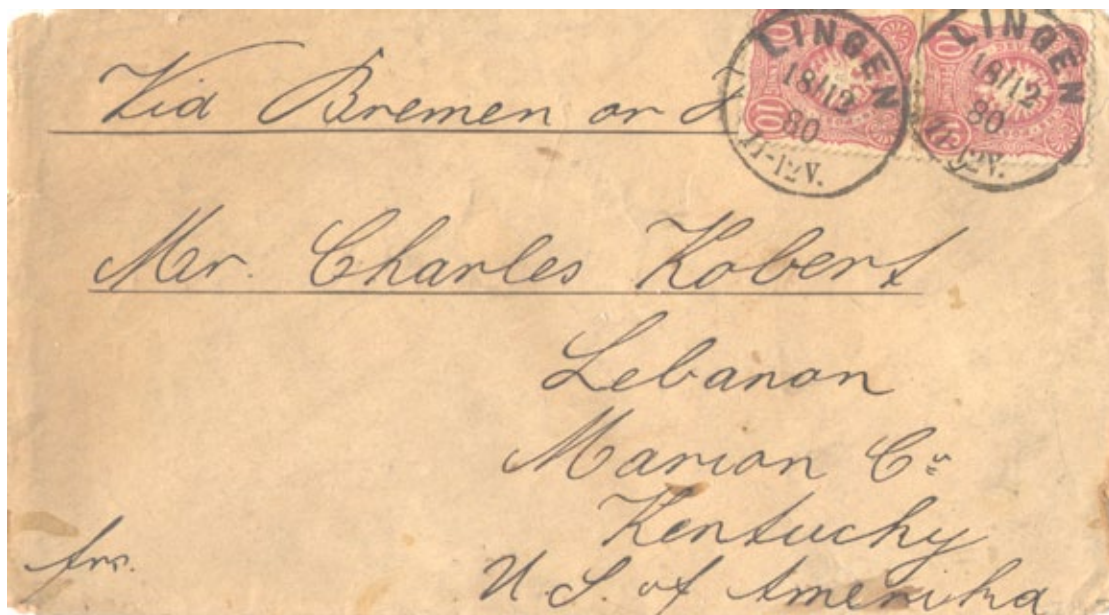 Via Bremen or
LINGEN
18/12
80
11-12V.
LINGEN
18/12
80
11-12V.
10
10
10
10
Mr. Charles Kobert
Lebanon
Marion Co
Kentucky
frco.
U. S. of Amerika